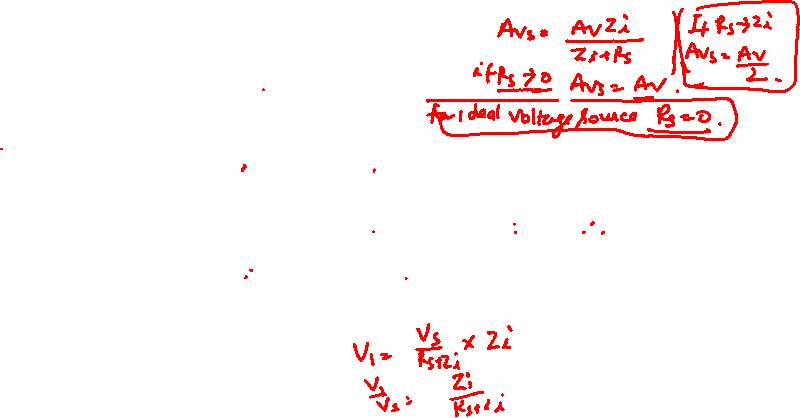 Avs = Av Zi / Zi+Rs
If Rs → Zi
Avs = Av / 2.
if Rs → 0 Avs = Av.
for ideal voltage source Rs = 0.
V1 = Vs / Rs+Zi × Zi
V1 / Vs = Zi / Rs+Zi